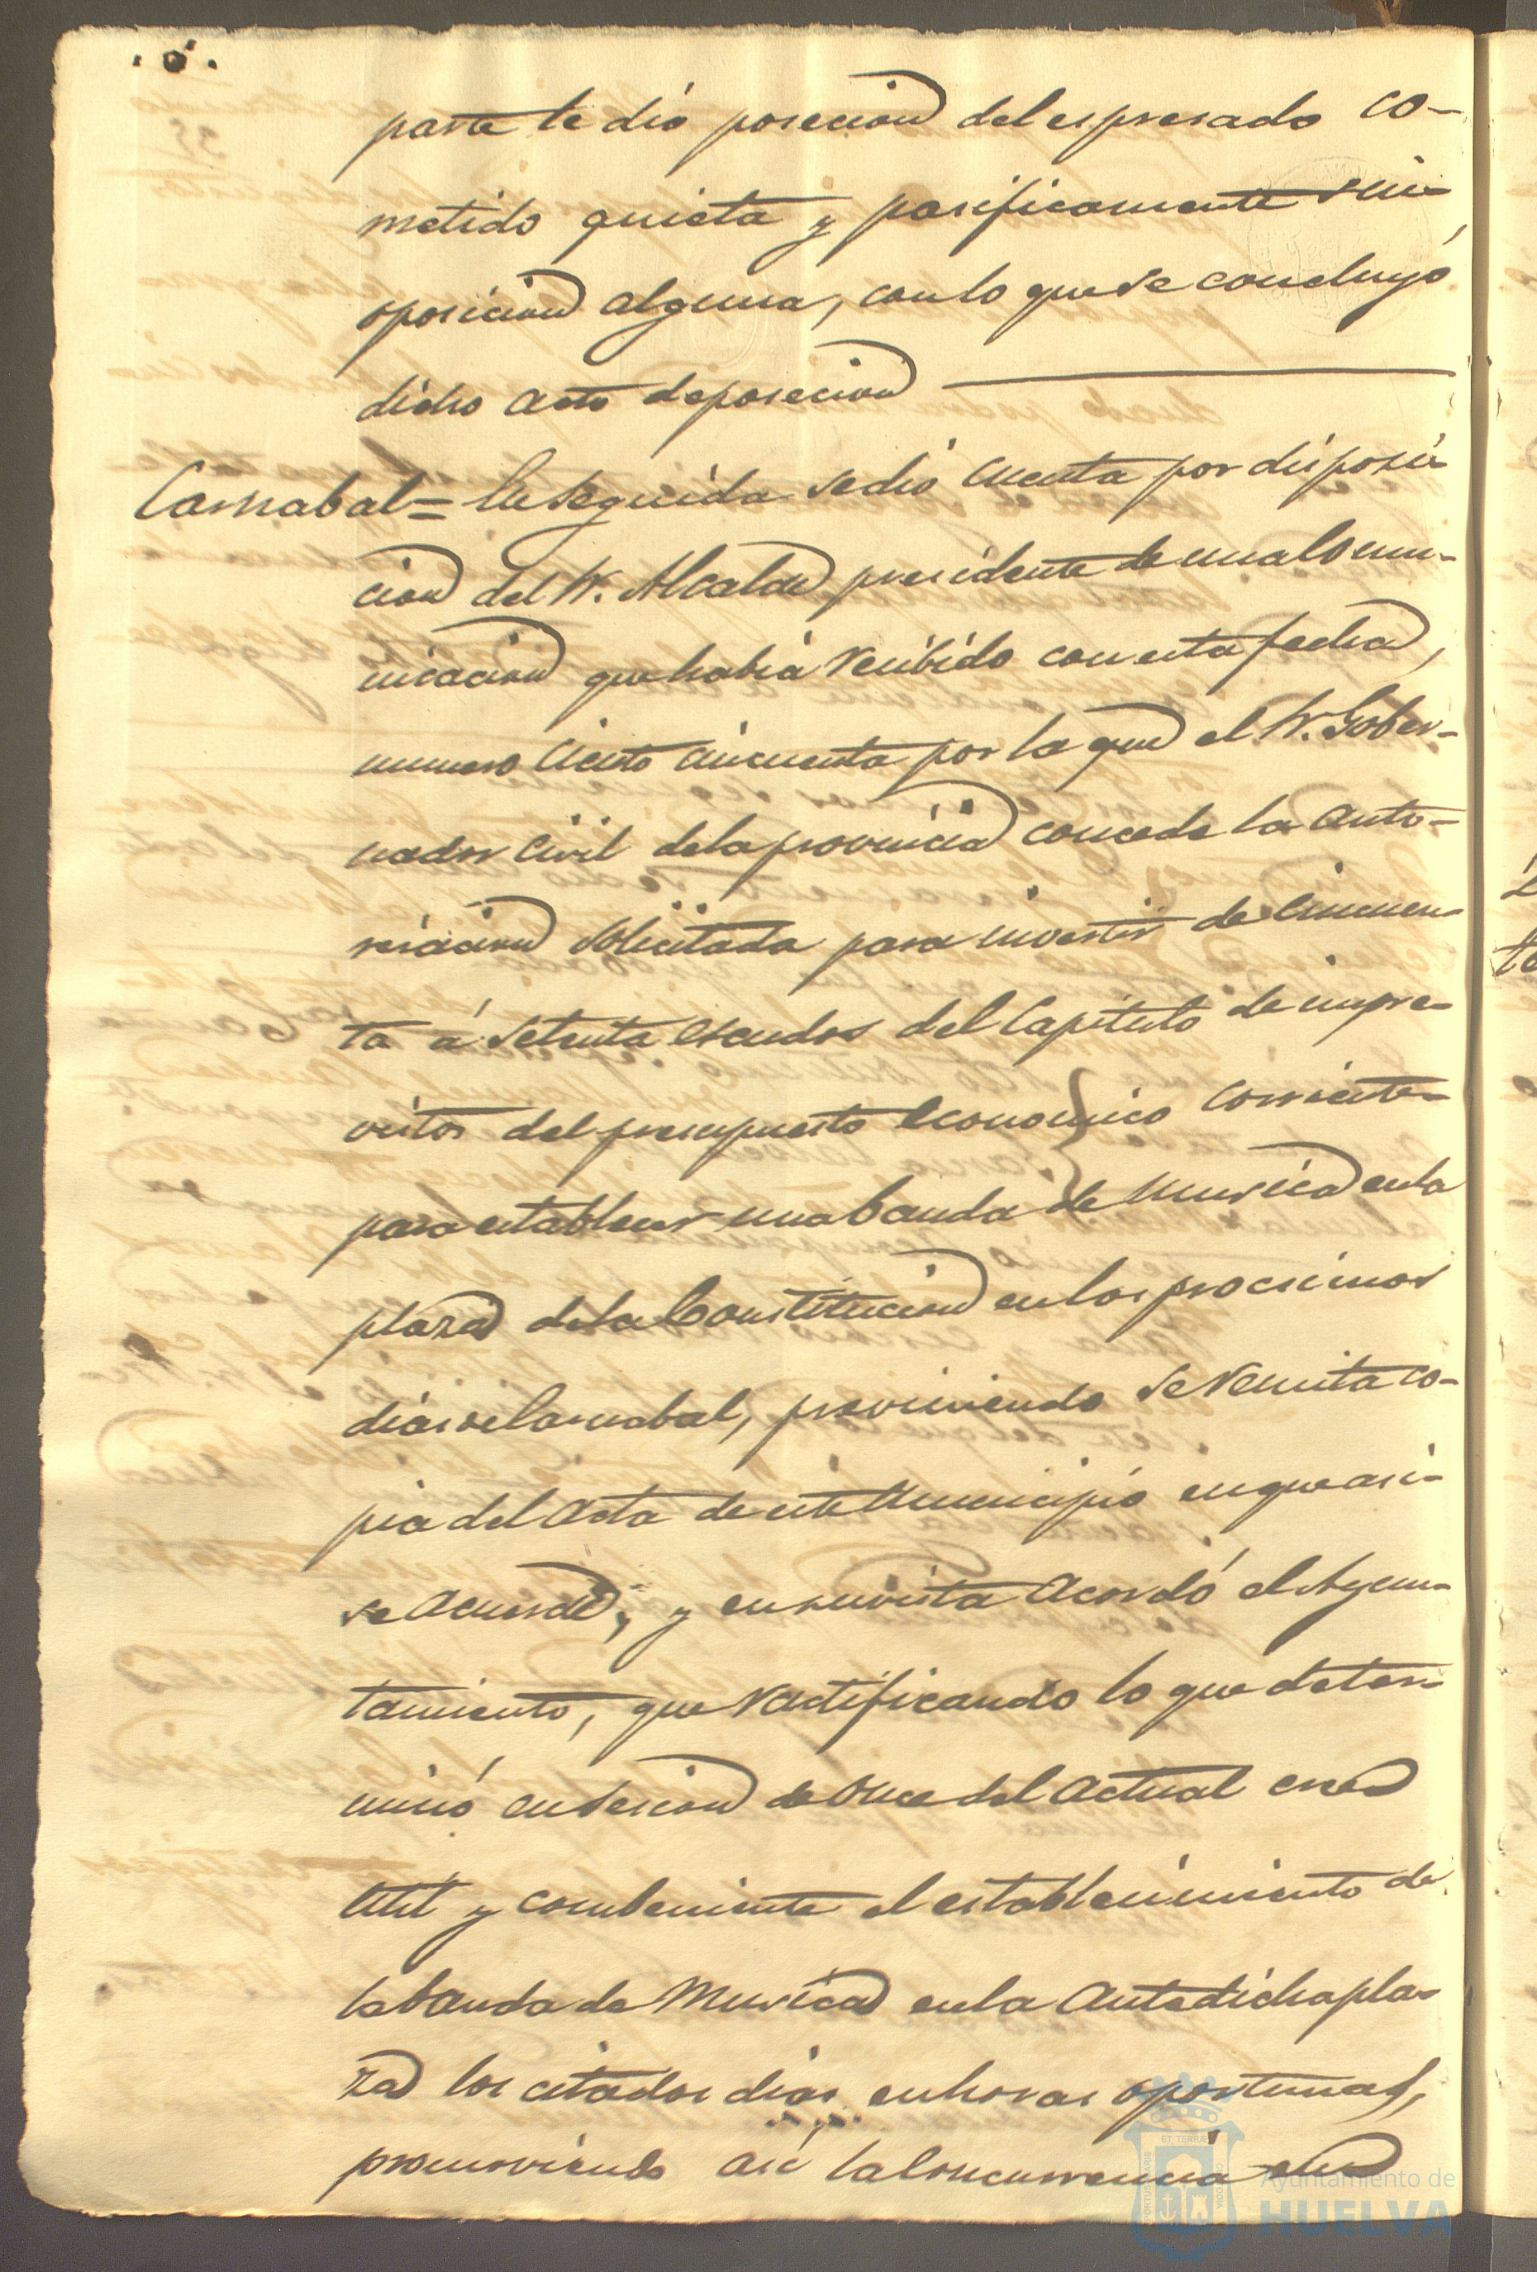 parte le dió posecion del espresado co-
metido quieta y pasificamente sin
oposicion alguna, con lo que se concluyó
dicho acto de posecion
Carnabal = En seguida se dió cuenta por disposi
cion del Sr. Alcalde presidente de una comu-
nicacion que habia recibido con esta fecha,
numero ciento cincuenta por la que el Sr. Gober-
nador Civil de la provincia concede la auto-
risacion solicitada para invertir de cincuen-
ta á setenta escudos del Capitulo de impre-
vistos del presupuesto economico corriente
para establecer una banda de musica en la
plaza de la Constitucion en los procsimos
dias de Carnabal, previniendo se remita co-
pia del acta de este Municipio en que asi
se acuerde, y en su vista acordó el Ayun-
tamiento, que ractificando lo que deter-
minó en sesion de once del actual cree
util y combeniente el establecimiento de
la banda de musica en la antedicha pla-
za los citados dias en horas oportunas,
promoviendo asi la concurrencia de
Ayuntamiento de
HUELVA